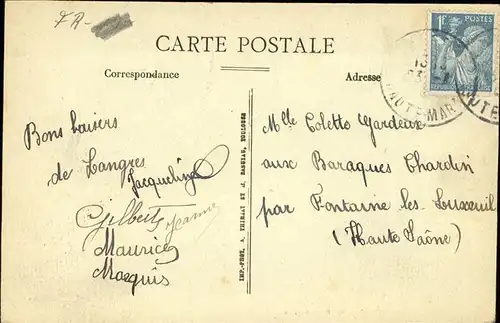 CARTE POSTALE
Correspondance
Adresse
1F
POSTES
HAUTE-MAR
Bons baisers
de Langres
Jacqueline
Gilberte Jeanne
Maurice
Macquis
IMP.-PHOT. A. THIRIAT ET J. BASUYAU, TOULOUSE
Mlle Colette Gardeux
aux Baraques Chardin
par Fontaine les Luxeuil
(Haute Saône)